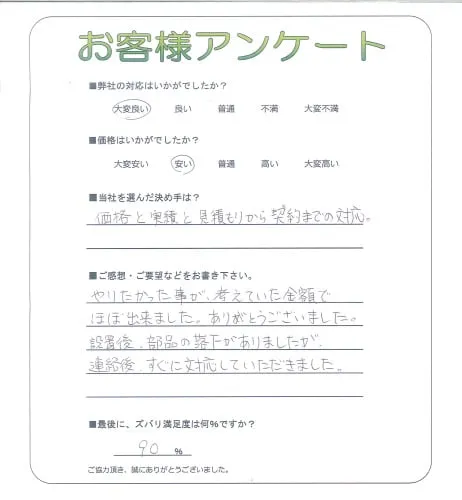 お客様アンケート
■弊社の対応はいかがでしたか？
大変良い 良い 普通 不満 大変不満
■価格はいかがでしたか？
大変安い 安い 普通 高い 大変高い
■当社を選んだ決め手は？
価格と実績と見積もりから契約までの対応。
■ご感想・ご要望などをお書き下さい。
やりたかった事が、考えていた金額で
ほぼ出来ました。ありがとうございました。
設置後、部品の落下がありましたが、
連絡後、すぐに対応していただきました。
■最後に、ズバリ満足度は何％ですか？
90 ％
ご協力頂き、誠にありがとうございました。